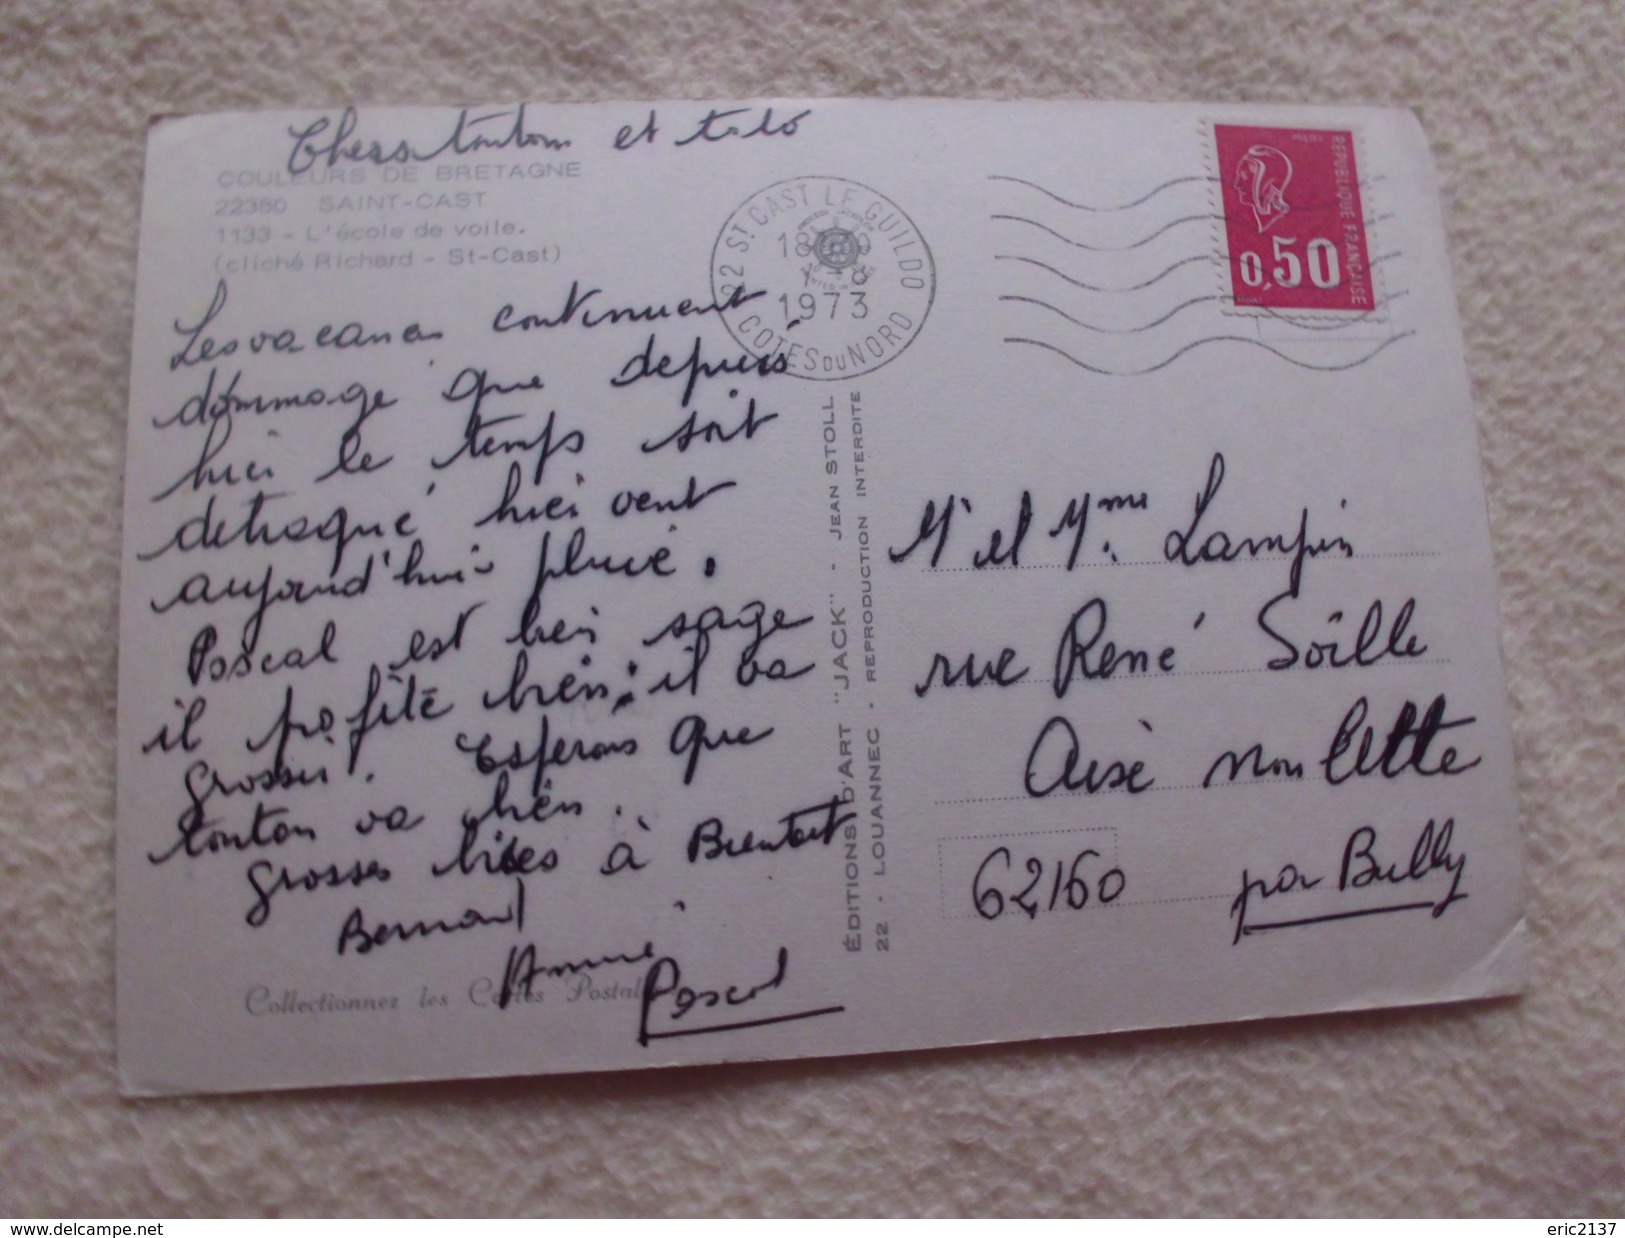 Chers tonton et tata
COULEURS DE BRETAGNE
22380 SAINT-CAST
1133 - L'école de voile.
(cliché Richard - St-Cast)
Les vacances continuent
dommage que depuis
hier le temps soit
detraqué hier vent
aujourd'hui pluie.
Pascal est bien sage
il profite bien; il va
grossir. Esperons que
tonton va bien.
grosses bises à Bientot
Bernard
Annie
Pascal
Collectionnez les Cartes Postales
22 ST CAST LE GUILDO
18
1973
COTES DU NORD
ÉDITIONS D'ART "JACK" - JEAN STOLL
22 - LOUANNEC - REPRODUCTION INTERDITE
REPUBLIQUE FRANÇAISE
0,50
Mr et Mme Lampin
rue René Soille
Aix noulette
62160 par Bully
www.delcampe.net
eric2137